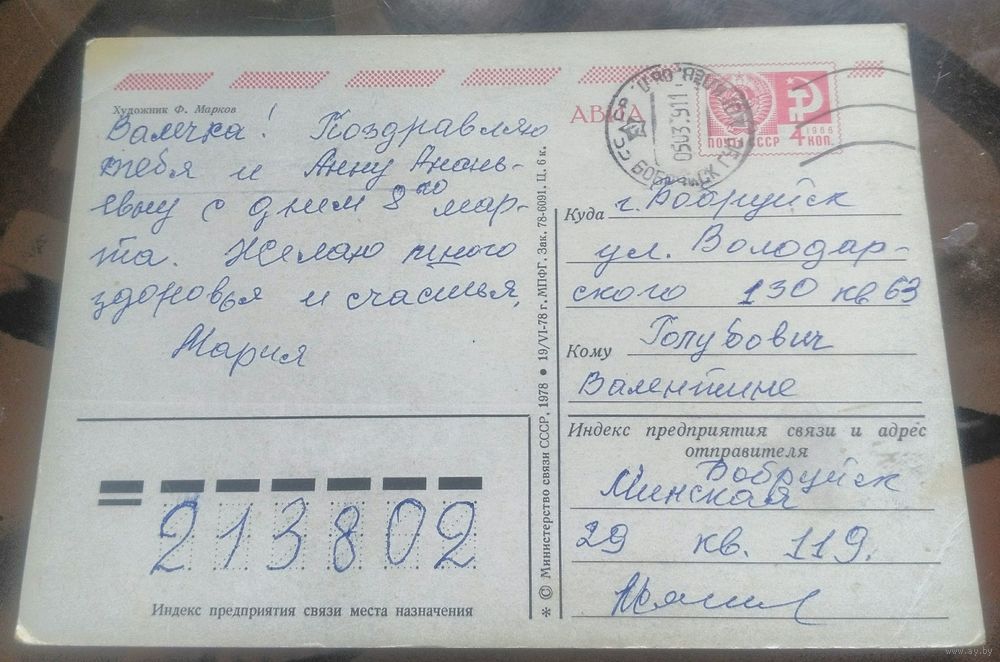 Художник Ф. Марков
Валечка! Поздравляю
тебя и Анну Анань-
евну с днем 8го мар-
та. Желаю много
здоровья и счастья.
Мария
213802
Индекс предприятия связи места назначения
* © Министерство связи СССР, 1978 • 19/VI-78 г. МПФГ. Зак. 78-6091. Ц. 6 к.
АВИА
ПОЧТА СССР
1966
4 коп.
Куда г. Бобруйск
ул. Володар-
ского 130 кв 63
Кому Голубович
Валентине
Индекс предприятия связи и адрес
отправителя
Бобруйск
Минская
29 кв. 119.
www.ay.by